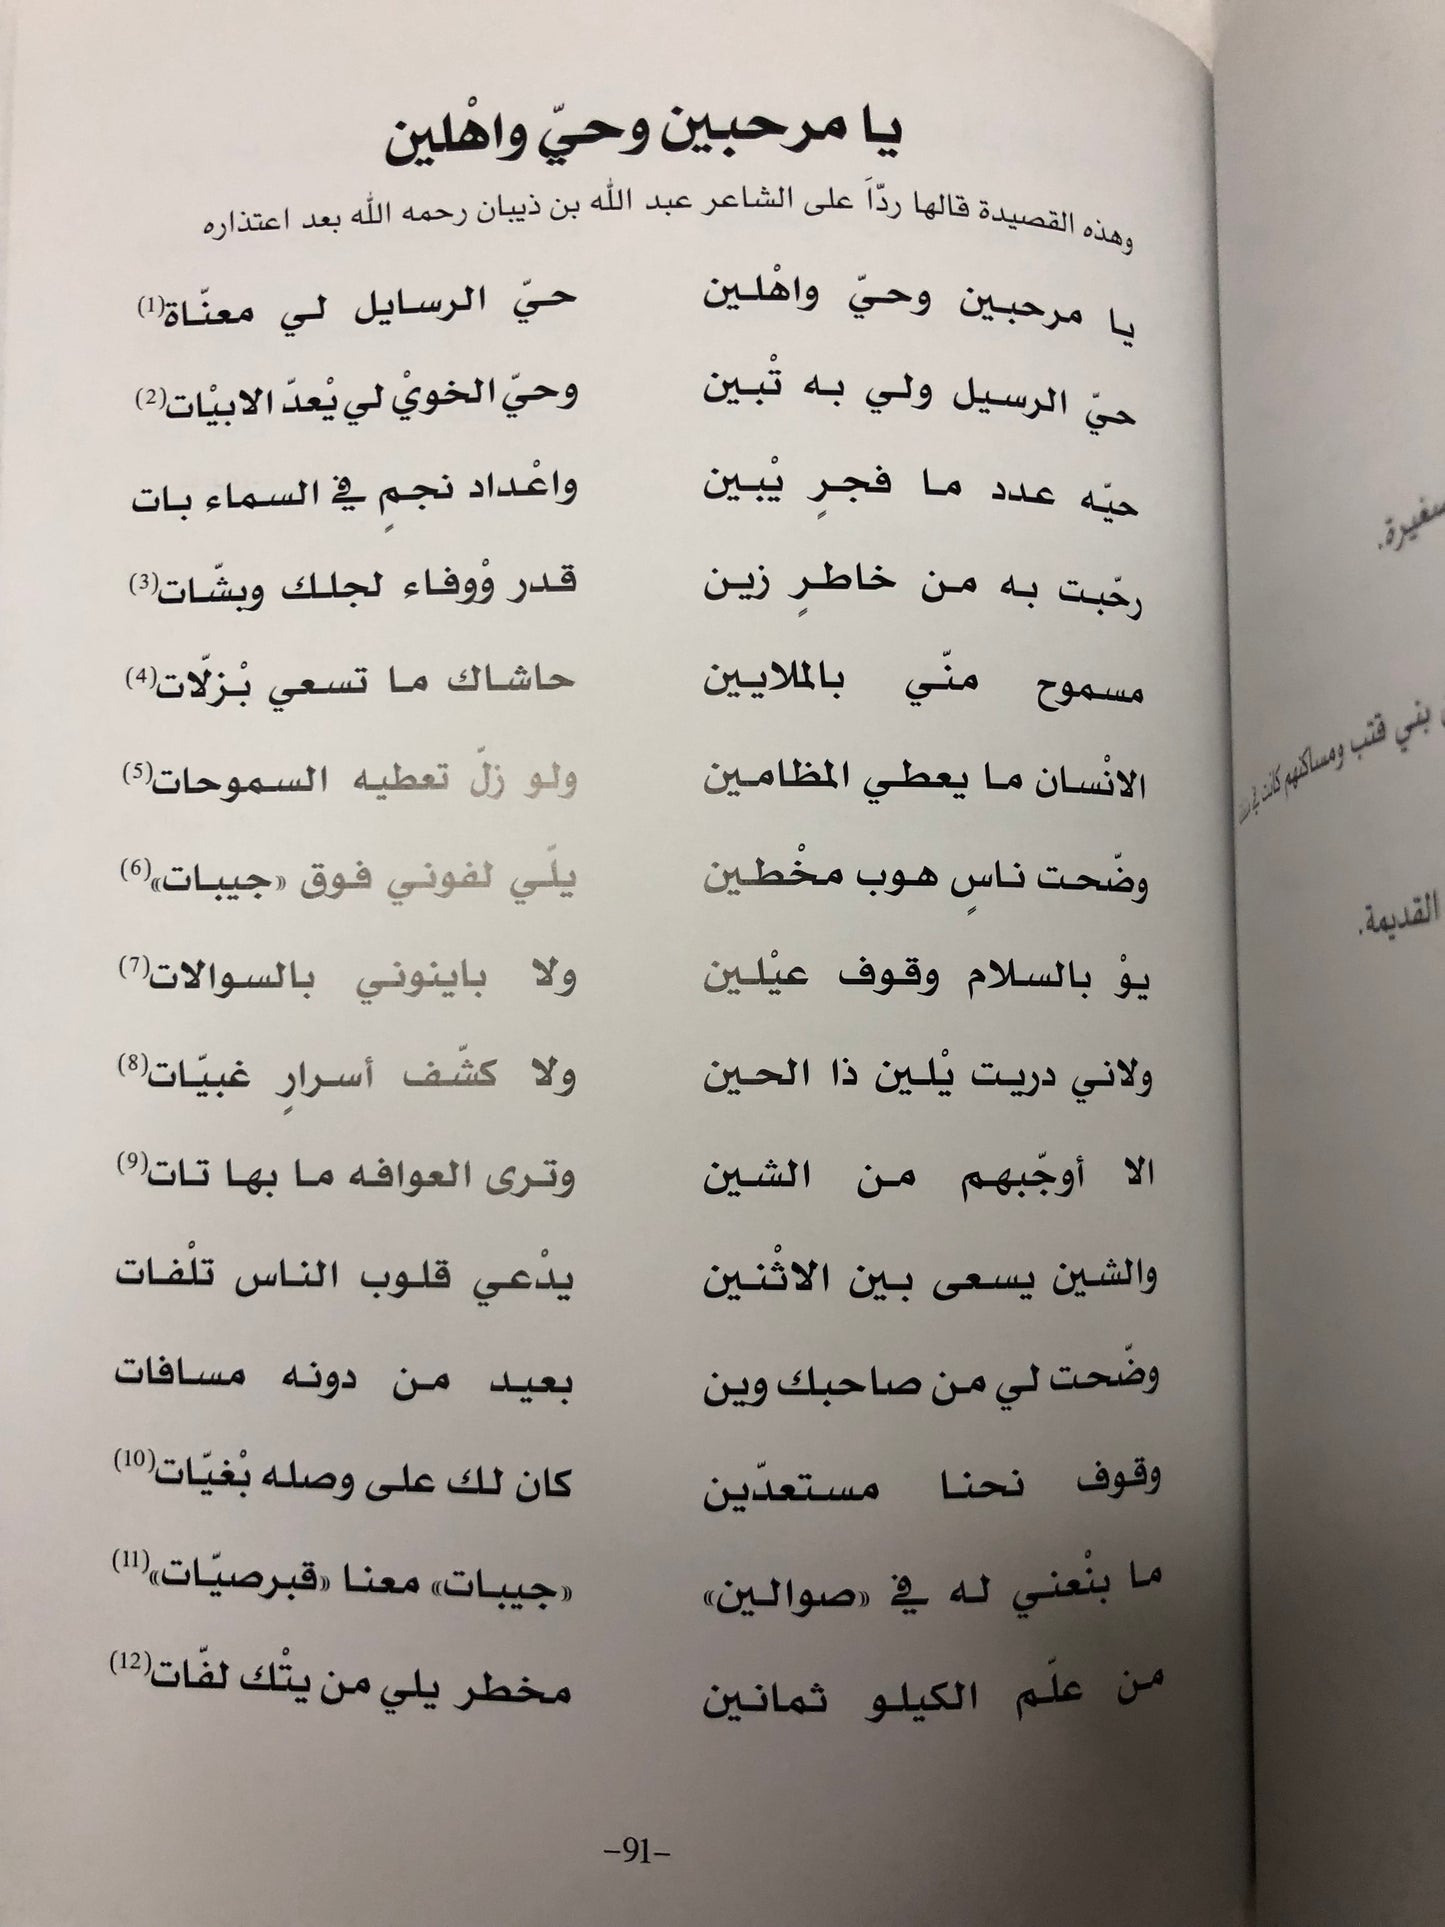 يا مرحبين وحيّ واهْلين
وهذه القصيدة قالها ردّاً على الشاعر عبد الله بن ذيبان رحمه الله بعد اعتذاره
يا مرحبين وحيّ واهْلين حيّ الرسايل لي معنّاة(1)
حيّ الرسيل ولي به تْبين وحيّ الخويْ لي يْعدّ الابيْات(2)
حيّه عدد ما فجرٍ يْبين واعْداد نجمٍ في السماء بات
رحّبت به من خاطرٍ زين قدر وْوفاء لجلك وبشّات(3)
مسموح منّي بالملايين حاشاك ما تسعي بْزلّات(4)
الانْسان ما يعطي المظامين ولو زلّ تعطيه السموحات(5)
وضّحت ناسٍ هوب مخْطين يلّي لفوني فوق «جيبات»(6)
يوْ بالسلام وقوف عيْلين ولا باينوني بالسوالات(7)
ولاني دريت يْلين ذا الحين ولا كشّف أسرارٍ غبيّات(8)
الا أوجّبهم من الشين وترى العوافه ما بها تات(9)
والشين يسعى بين الاثْنين يدْعي قلوب الناس تلْفات
وضّحت لي من صاحبك وين بعيد من دونه مسافات
وقوف نحنا مستعدّين كان لك على وصله بْغيّات(10)
ما بنْعني له في «صوالين» «جيبات» معنا «قبرصيّات»(11)
من علّم الكيلو ثمانين مخطر يلي من يتْك لفّات(12)
–91–
القديمة.